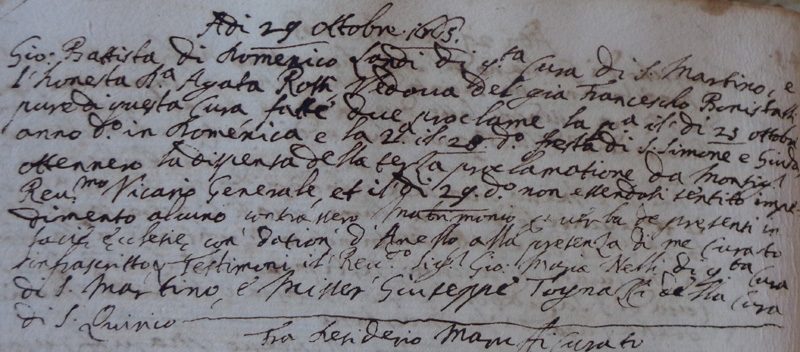 Adi 29 ottobre 1663.
Gio: Battista di Domenico Landi di q.ta Cura di S. Martino, e
l'honesta D.a Agata Rossi Vedova del già Francesco
pure di questa Cura fatte due proclame la p.a il dì 23 ottobre
anno d.o in Domenica e la 2.a il 28 d.o festa di S. Simone e Giuda
ottennero la dispensa della terza proclamatione da Monsig.r
Rev.mo Vicario Generale, et il dì 29 d.o non essendosi sentito impe
dimento alcuno contrassero Matrimonio p verba de presenti in
facie Ecclesie, con dation d'Anello alla presenza di me Curato
infrascritto, Testimoni il Rev.o Sig.r Gio: Maria Nelli di q.ta Cura
di S. Martino, e Misser Giuseppe della Cura
di S. Quirico
Fra Desiderio Curato